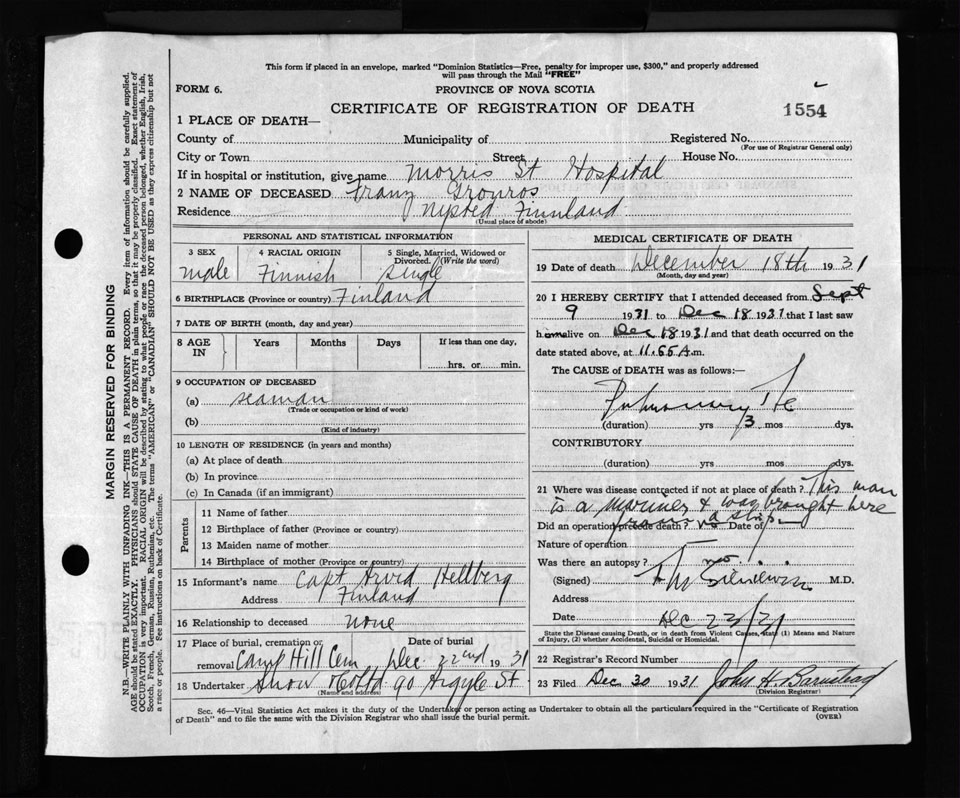 This form if placed in an envelope, marked "Dominion Statistics—Free, penalty for improper use, $300," and properly addressed
will pass through the Mail "FREE"
FORM 6.
PROVINCE OF NOVA SCOTIA
CERTIFICATE OF REGISTRATION OF DEATH
1554
1 PLACE OF DEATH—
County of Municipality of Registered No.
(For use of Registrar General only)
City or Town Street House No.
If in hospital or institution, give name Morris St Hospital
2 NAME OF DECEASED Franz Gronros
Residence Finnland
(Usual place of abode)
PERSONAL AND STATISTICAL INFORMATION
3 SEX 4 RACIAL ORIGIN 5 Single, Married, Widowed or
Divorced. (Write the word)
male Finnish single
6 BIRTHPLACE (Province or country) Finland
7 DATE OF BIRTH (month, day and year)
8 AGE IN Years Months Days If less than one day,
hrs. or min.
9 OCCUPATION OF DECEASED
(a) seaman
(Trade or occupation or kind of work)
(b)
(Kind of industry)
10 LENGTH OF RESIDENCE (in years and months)
(a) At place of death
(b) In province
(c) In Canada (if an immigrant)
Parents
11 Name of father
12 Birthplace of father (Province or country)
13 Maiden name of mother
14 Birthplace of mother (Province or country)
15 Informant's name Capt Arvid Hellberg
Address Finland
16 Relationship to deceased none
17 Place of burial, cremation or Date of burial
removal Camp Hill Cem Dec 22nd 1931
18 Undertaker Snow & Co Ltd 90 Argyle St
(Name and address)
MEDICAL CERTIFICATE OF DEATH
19 Date of death December 18th 1931
(Month, day and year)
20 I HEREBY CERTIFY that I attended deceased from Sept
9 1931 to Dec 18 1931 that I last saw
him alive on Dec 18 1931 and that death occurred on
date stated above, at 11.55 A.m.
The CAUSE of DEATH was as follows:—
Pulmonary
(duration) yrs 3 mos dys.
CONTRIBUTORY
(duration) yrs mos dys.
21 Where was disease contracted if not at place of death? This man
is a mariner & was brought here
from a ship
Did an operation precede death? no Date of
Nature of operation
Was there an autopsy? no
(Signed) M.D.
Address
Date Dec 23/31
State the Disease causing Death, or in death from Violent Causes, state (1) Means and Nature
of Injury, (2) whether Accidental, Suicidal or Homicidal.
22 Registrar's Record Number
23 Filed Dec 30 1931 John H. Barnstead
(Division Registrar)
Sec. 46—Vital Statistics Act makes it the duty of the Undertaker or person acting as Undertaker to obtain all the particulars required in the "Certificate of Registration
of Death" and to file the same with the Division Registrar who shall issue the burial permit.
(OVER)
MARGIN RESERVED FOR BINDING
N.B.—WRITE PLAINLY WITH UNFADING INK—THIS IS A PERMANENT RECORD. Every item of information should be carefully supplied.
AGE should be stated EXACTLY. PHYSICIANS should STATE CAUSE OF DEATH in plain terms, so that it may be properly classified. Exact statement of
OCCUPATION is very important. RACIAL ORIGIN will be described by stating to what people or race the deceased person belonged, whether English, Irish,
Scotch, French, German, Russian, Ruthenian, etc. The terms "AMERICAN" or "CANADIAN" SHOULD NOT BE USED as they express citizenship but not
a race or people. See instructions on back of Certificate.